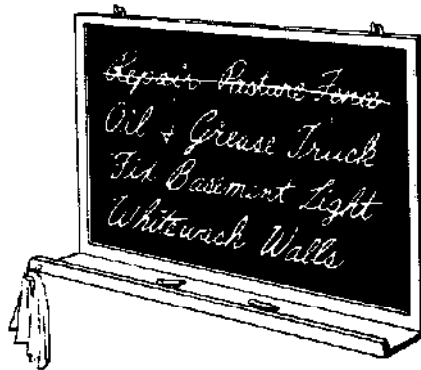 Repair Pasture Fence
Oil & Grease Truck
Fix Basement Light
Whitewash Walls